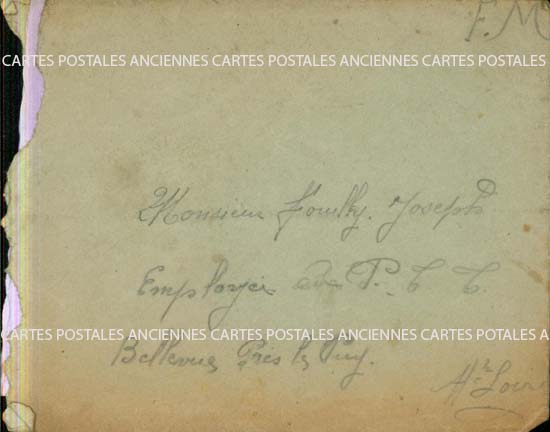 F. M
CARTES POSTALES ANCIENNES CARTES POSTALES ANCIENNES CARTES POSTALES
Monsieur Fouilly. Joseph
Employer aux P. T T.
CARTES POSTALES ANCIENNES CARTES POSTALES ANCIENNES CARTES POTALES A
Bellevue Près le Puy.
Hte Loire